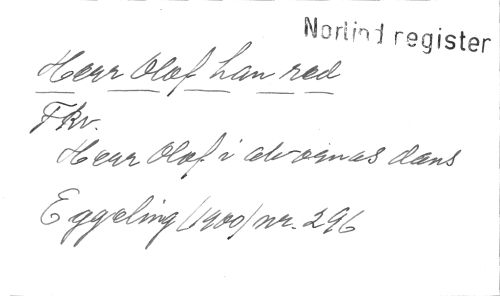 Norlind register
Herr Olof han red
Fkv.
Herr Olof i alvornas dans
Eggeling (1900) nr. 296